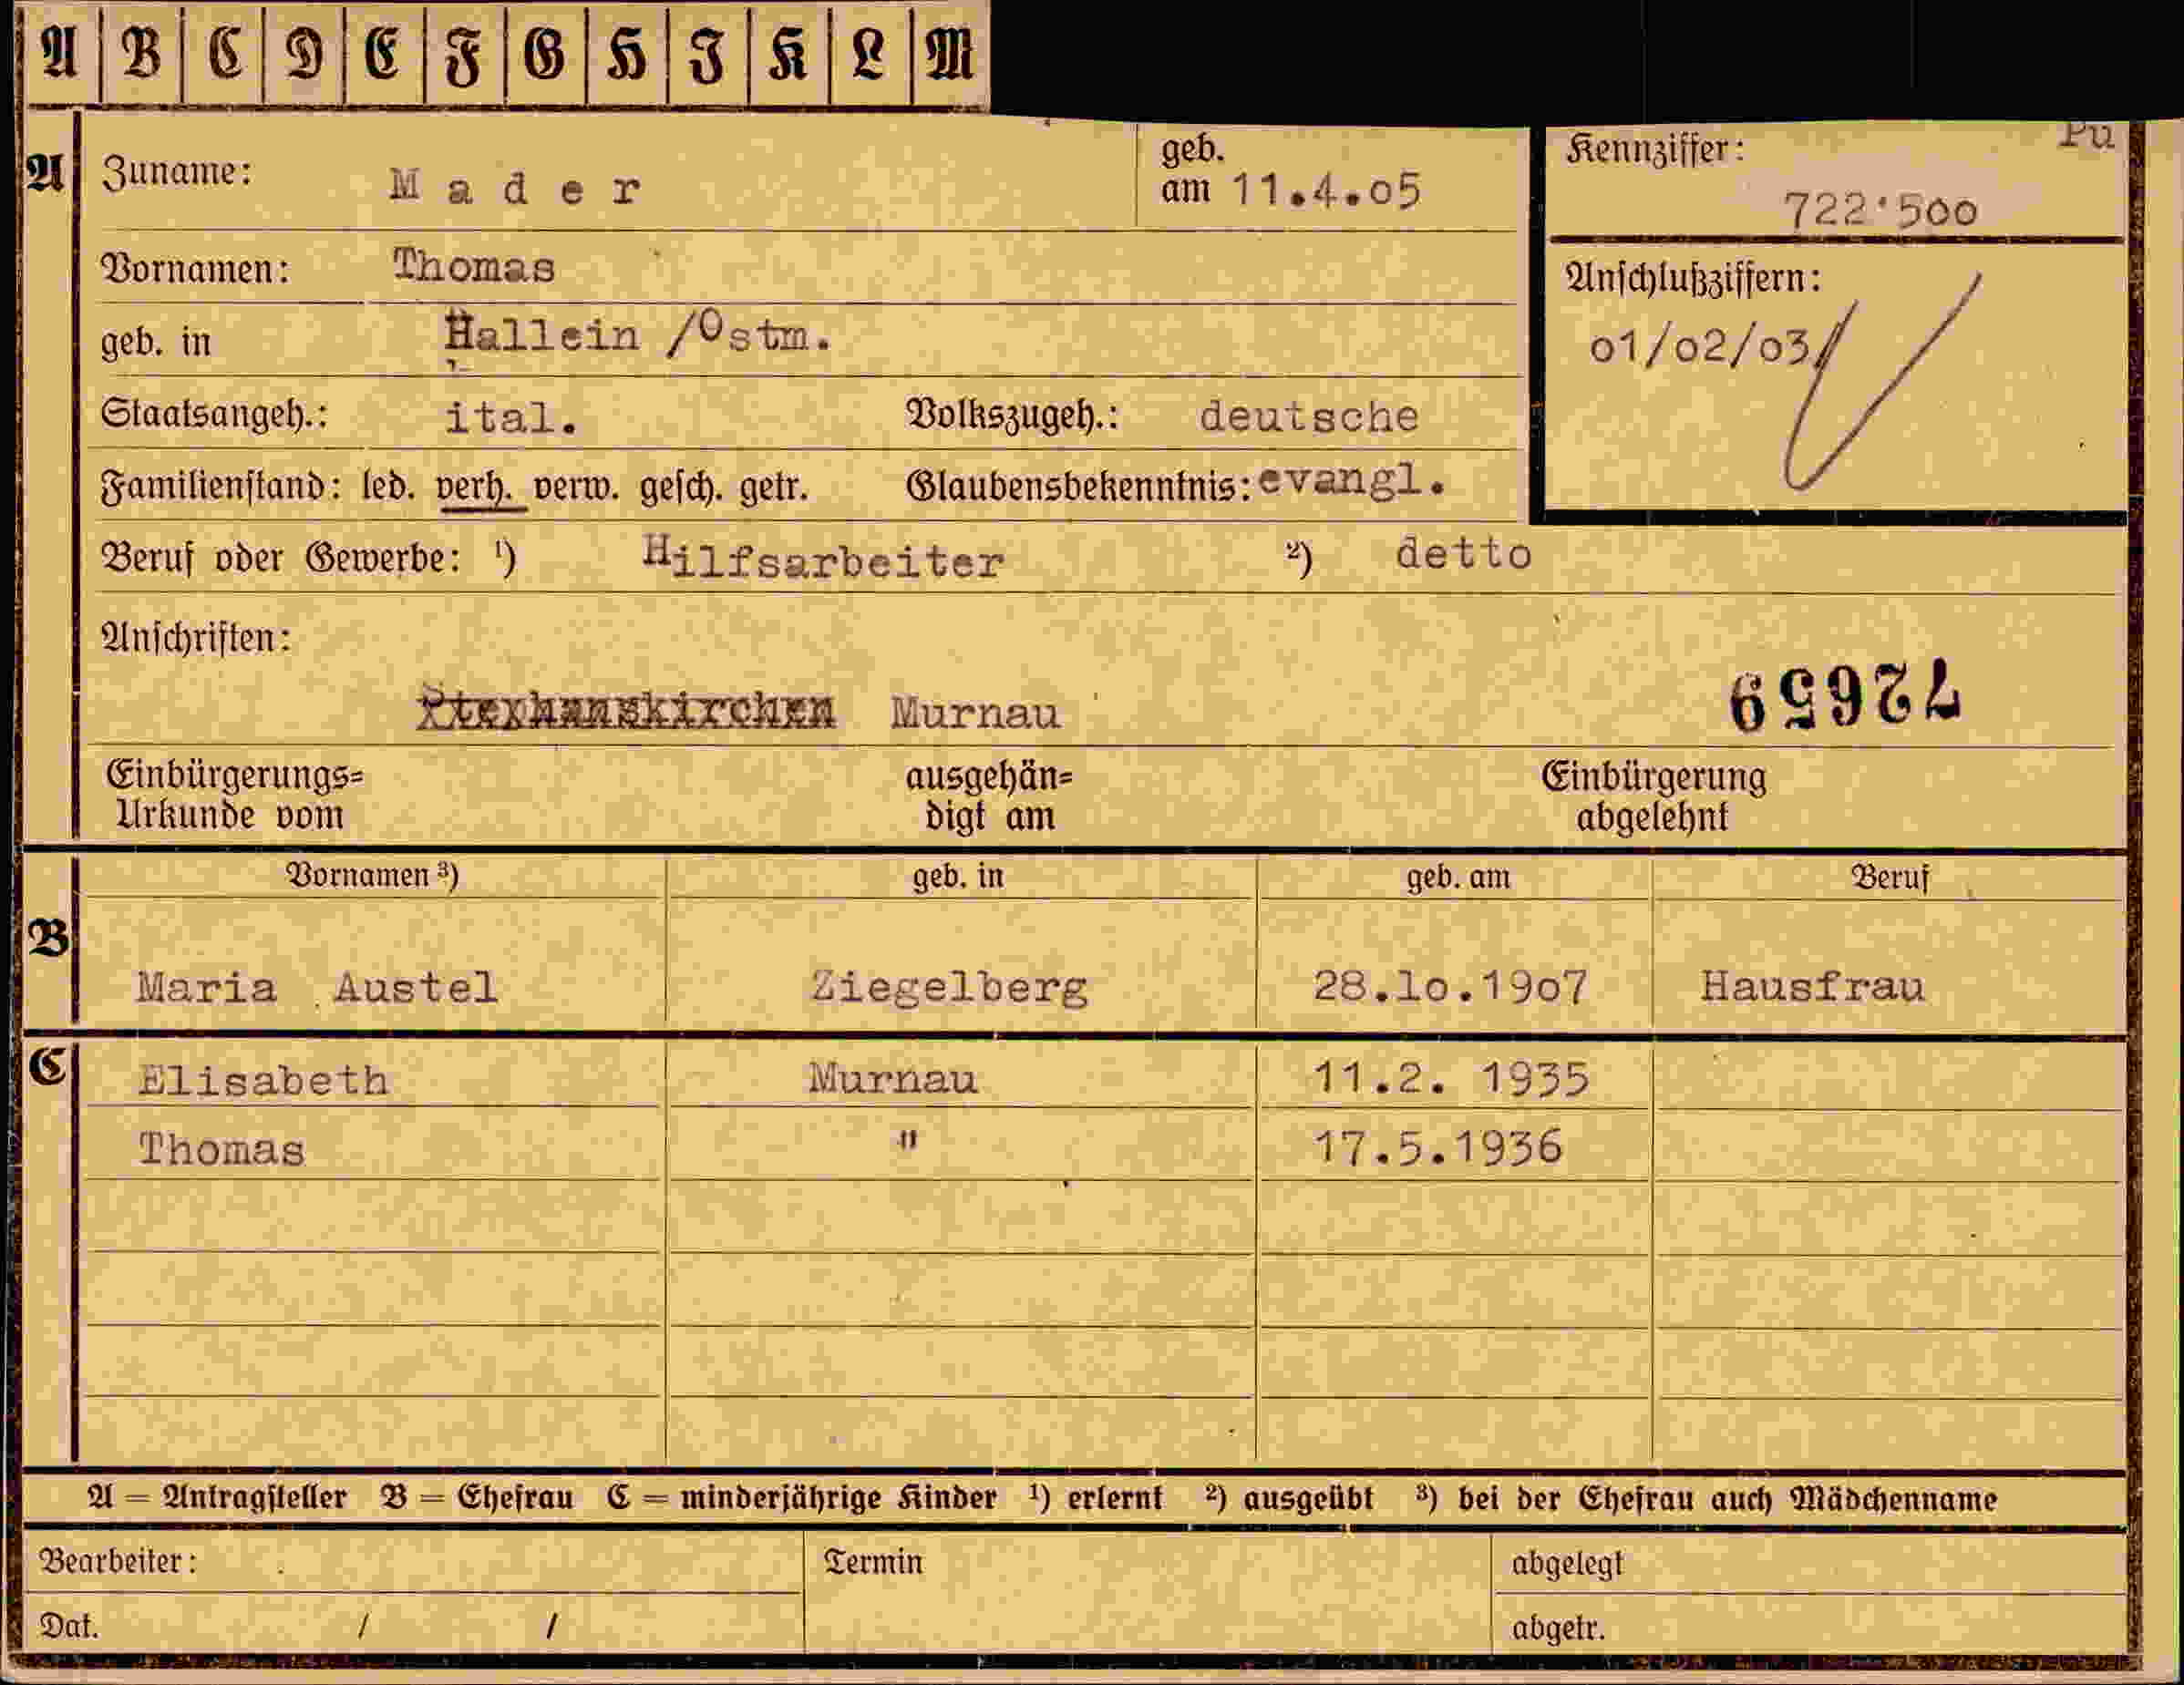 A B C D E F G H I K L M
A Zuname: Mader geb. am 11.4.05
Kennziffer: Pu
722'500
Vornamen: Thomas
Anschlußziffern:
01/02/03/
geb. in Hallein /Ostm.
Staatsangeh.: ital. Volkszugeh.: deutsche
Familienstand: led. verh. verw. gesch. getr. Glaubensbekenntnis: evangl.
Beruf oder Gewerbe: ¹) Hilfsarbeiter ²) detto
Anschriften:
72659
Murnau
Einbürgerungs= ausgehän= Einbürgerung
Urkunde vom digt am abgelehnt
Vornamen ³) geb. in geb. am Beruf
B Maria Austel Ziegelberg 28.10.1907 Hausfrau
C Elisabeth Murnau 11.2. 1935
Thomas " 17.5.1936
A = Antragsteller B = Ehefrau C = minderjährige Kinder ¹) erlernt ²) ausgeübt ³) bei der Ehefrau auch Mädchenname
Bearbeiter: Termin abgelegt
Dat. / / abgetr.